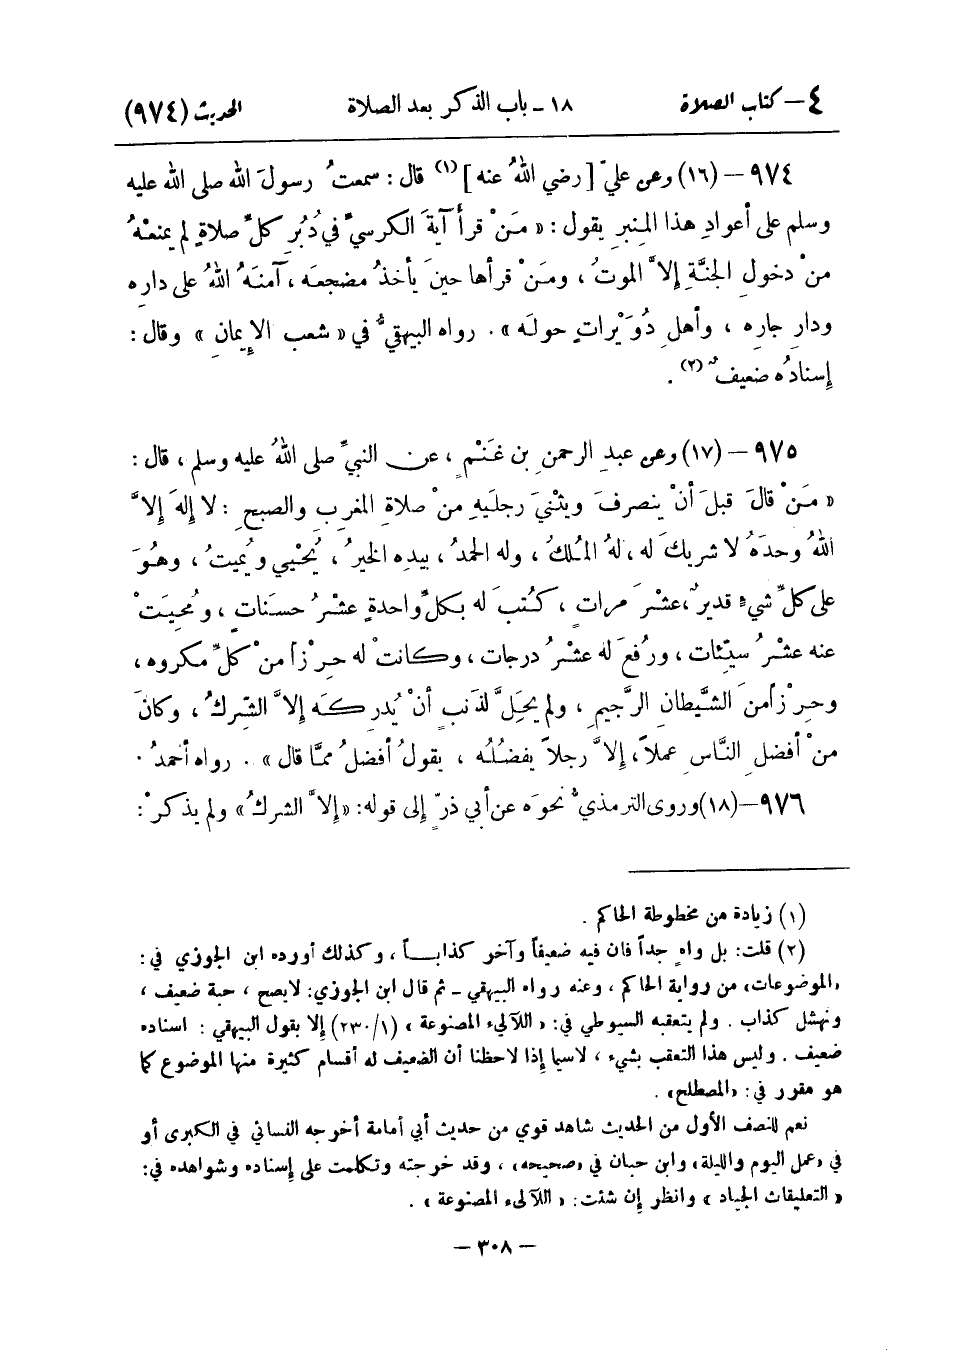 ٤ – كتاب الصلاة ١٨ - باب الذكر بعد الصلاة الحديث (٩٧٤)
٩٧٤ – (١٦) وعن عليّ [رضي اللهُ عنه] (١) قال : سمعتُ رسولَ الله صلى الله عليه
وسلم على أعوادِ هذا المِنبرِ يقول : « مَنْ قرأَ آيةَ الكرسيِّ في دُبُرِ كلِّ صلاةٍ لم يمنعْهُ
منْ دخولِ الجنَّةِ إلاَّ الموتُ ، ومَنْ قرأها حينَ يأخذُ مضجعَه ، آمنَهُ اللهُ على دارِه
ودارِ جارِه ، وأهلِ دُوَيْراتٍ حولَه » . رواه البيهقيُّ في « شعب الإيمانِ » وقال :
إسنادُه ضعيفٌ (٢) .
٩٧٥ – (١٧) وعن عبدِ الرحمنِ بنِ غَنْمٍ ، عن النبيِّ صلى اللهُ عليه وسلم ، قال :
« مَنْ قالَ قبلَ أنْ ينصرفَ ويثنيَ رجلَيهِ منْ صلاةِ المغربِ والصبحِ : لا إلهَ إلاَّ
اللهُ وحدَهُ لا شريكَ له ، لهُ المُلكُ ، وله الحمدُ ، بيدِه الخيرُ ، يُحْيي ويُميتُ ، وهُوَ
على كلِّ شيءٍ قديرٌ ، عشْرَ مراتٍ ، كُتبَ له بكلِّ واحدةٍ عشْرُ حسَناتٍ ، ومُحيَتْ
عنه عشْرُ سيِّئات ، ورُفعَ له عشْرُ درجات ، وكانتْ له حِرْزاً منْ كلِّ مكروه ،
وحِرْزاً منَ الشَّيطانِ الرَّجيمِ ، ولم يحِلَّ لذنبٍ أنْ يُدرِكَه إلاَّ الشِّركُ ، وكانَ
منْ أفضلِ النَّاسِ عملاً ، إلاَّ رجلاً يفضُلُه ، يقولُ أفضلُ ممَّا قال » . رواه أحمدُ .
٩٧٦ – (١٨) وروى الترمذيُّ نحوَه عن أبي ذرٍّ إلى قوله : « إلاَّ الشركُ » ولم يذكرْ :
(١) زيادة من مخطوطة الحاكم .
(٢) قلت : بل واهٍ جداً فان فيه ضعيفاً وآخر كذاباً ، وكذلك أورده ابن الجوزي في :
«الموضوعات» من رواية الحاكم ، وعنه رواه البيهقي - ثم قال ابن الجوزي : لايصح ، حبة ضعيف ،
ونهشل كذاب . ولم يتعقبه السيوطي في : « اللآلىء المصنوعة » (٢٣٠/١) إلا بقول البيهقي : اسناده
ضعيف . وليس هذا التعقب بشيء ، لاسيما إذا لاحظنا أن الضعيف له أقسام كثيرة منها الموضوع كما
هو مقرر في : «المصطلح» .
نعم للنصف الأول من الحديث شاهد قوي من حديث أبي أمامة أخرجه النسائي في الكبرى أو
في «عمل اليوم والليلة» وابن حبان في «صحيحه» ، وقد خرجته وتكلمت على إسناده وشواهده في :
« التعليقات الجياد » وانظر إن شئت : « اللآلىء المصنوعة » .
– ٣٠٨ –